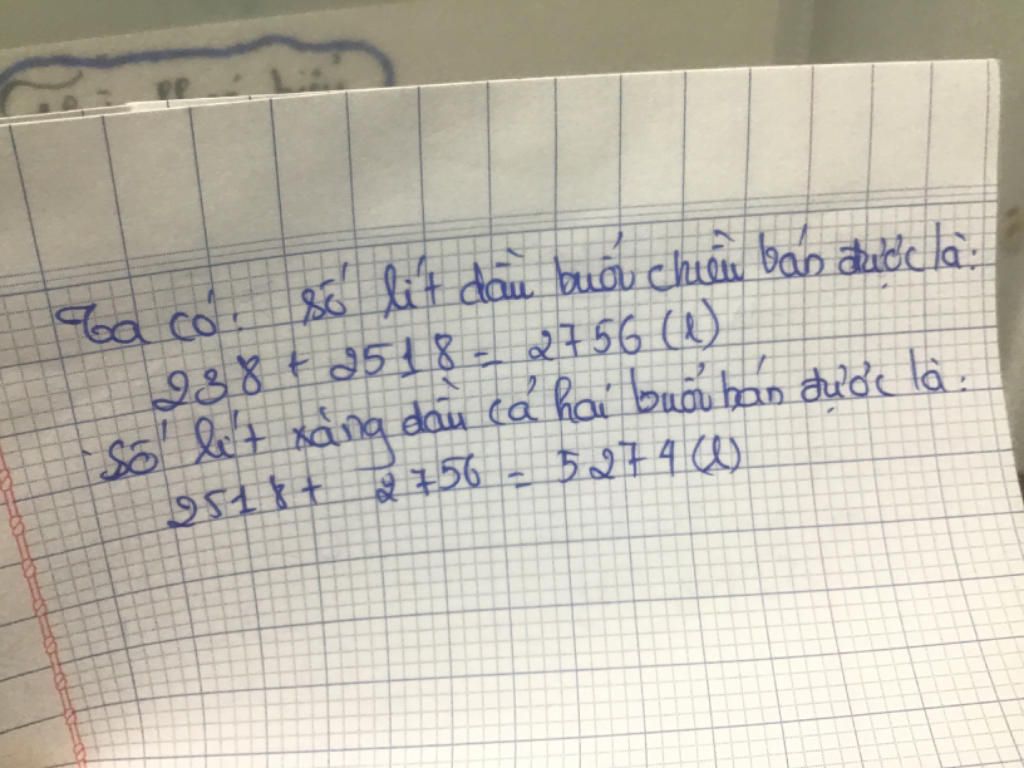 Ta có: Số lít dầu buổi chiều bán được là:
238 + 2518 = 2756 (l)
Số lít xăng dầu cả hai buổi bán được là:
2518 + 2756 = 5274 (l)